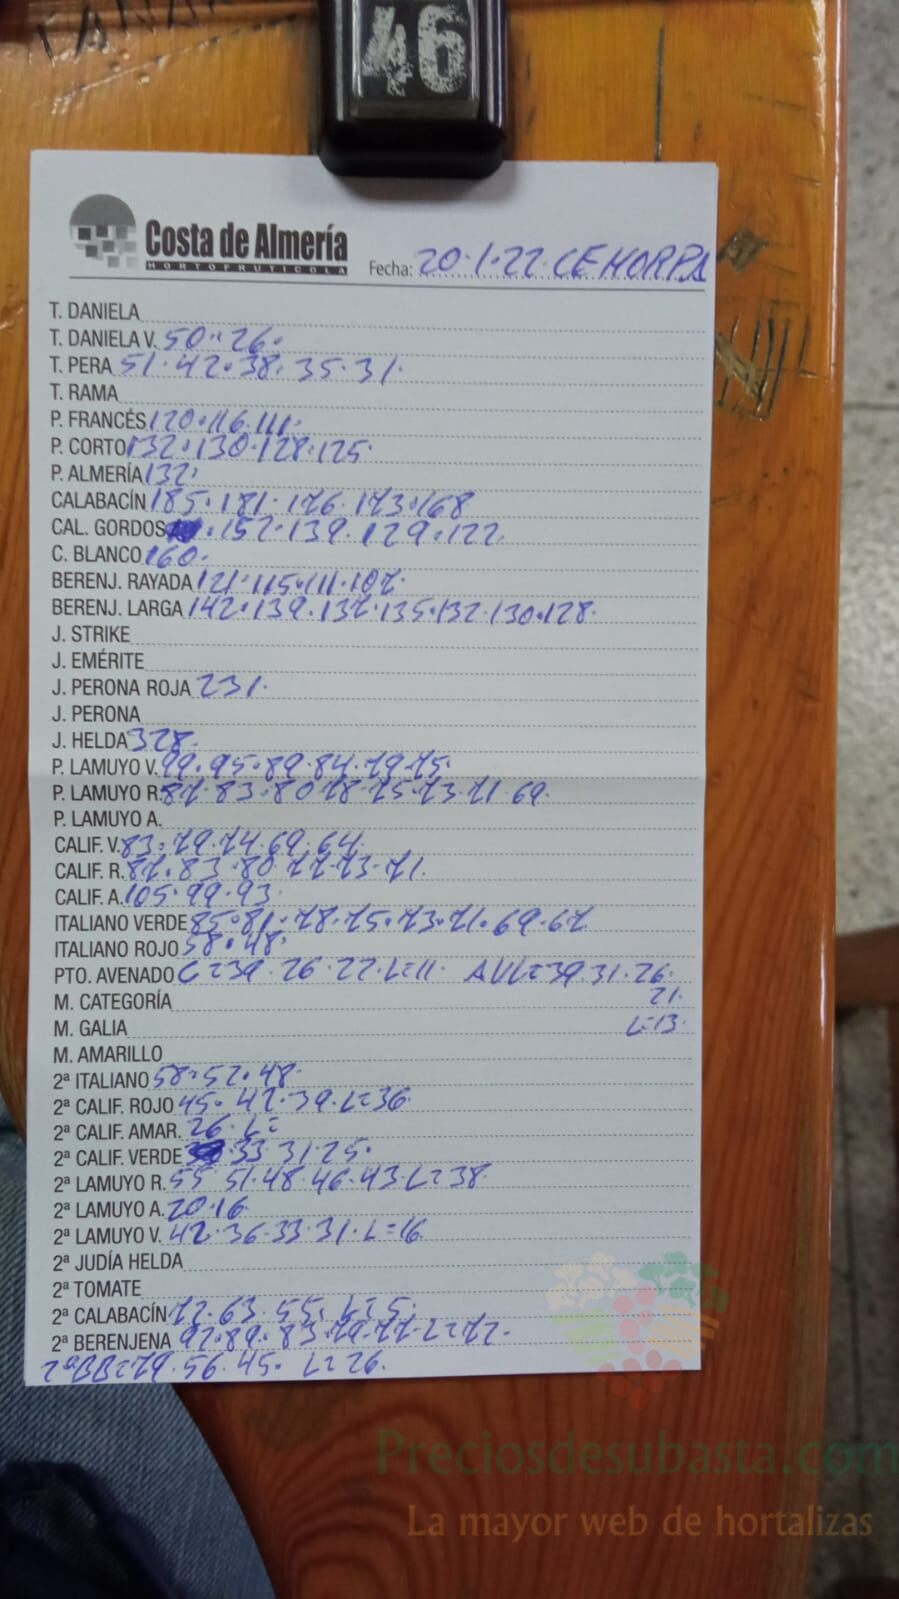 46
Costa de Almería
HORTOFRUTICOLA
Fecha: 20.1.22. CEHORPA
T. DANIELA
T. DANIELA V. 50.. 26.
T. PERA 51. 42. 38. 35. 31.
T. RAMA
P. FRANCÉS 120. 116. 111.
P. CORTO 132. 130. 128. 125.
P. ALMERÍA 132.
CALABACÍN 185. 181. 176. 173. 168
CAL. GORDOS . 152. 139. 129. 122.
C. BLANCO 160.
BERENJ. RAYADA 121. 115. 111. 107.
BERENJ. LARGA 142. 139. 137. 135. 132. 130. 128.
J. STRIKE
J. EMÉRITE
J. PERONA ROJA 231.
J. PERONA
J. HELDA 328.
P. LAMUYO V. 99. 95. 89. 84. 79. 75.
P. LAMUYO R. 87. 83. 80 78. 75. 73. 71. 69.
P. LAMUYO A.
CALIF. V. 83. 79. 74. 69. 64.
CALIF. R. 87. 83. 80. 77. 73. 71.
CALIF. A. 105. 99. 93.
ITALIANO VERDE 85. 81. 78. 75. 73. 71. 69. 67
ITALIANO ROJO 58. 48.
PTO. AVENADO C=39. 26. 22. L=11. AVL=39. 31. 26.
M. CATEGORÍA 21.
M. GALIA L=13.
M. AMARILLO
2ª ITALIANO 58. 52. 48.
2ª CALIF. ROJO 45. 42. 39. L=36
2ª CALIF. AMAR. 26. L=
2ª CALIF. VERDE 33. 31. 25.
2ª LAMUYO R. 55 51. 48. 46. 43. L=38.
2ª LAMUYO A. 20. 16.
2ª LAMUYO V. 42. 36. 33. 31. L=16.
2ª JUDÍA HELDA
2ª TOMATE
2ª CALABACÍN 72. 63. 55. L=5.
2ª BERENJENA 92. 89. 83. 79. 77. L=72.
2ªBB=79. 56. 45. L=26.
Preciosdesubasta.com
La mayor web de hortalizas